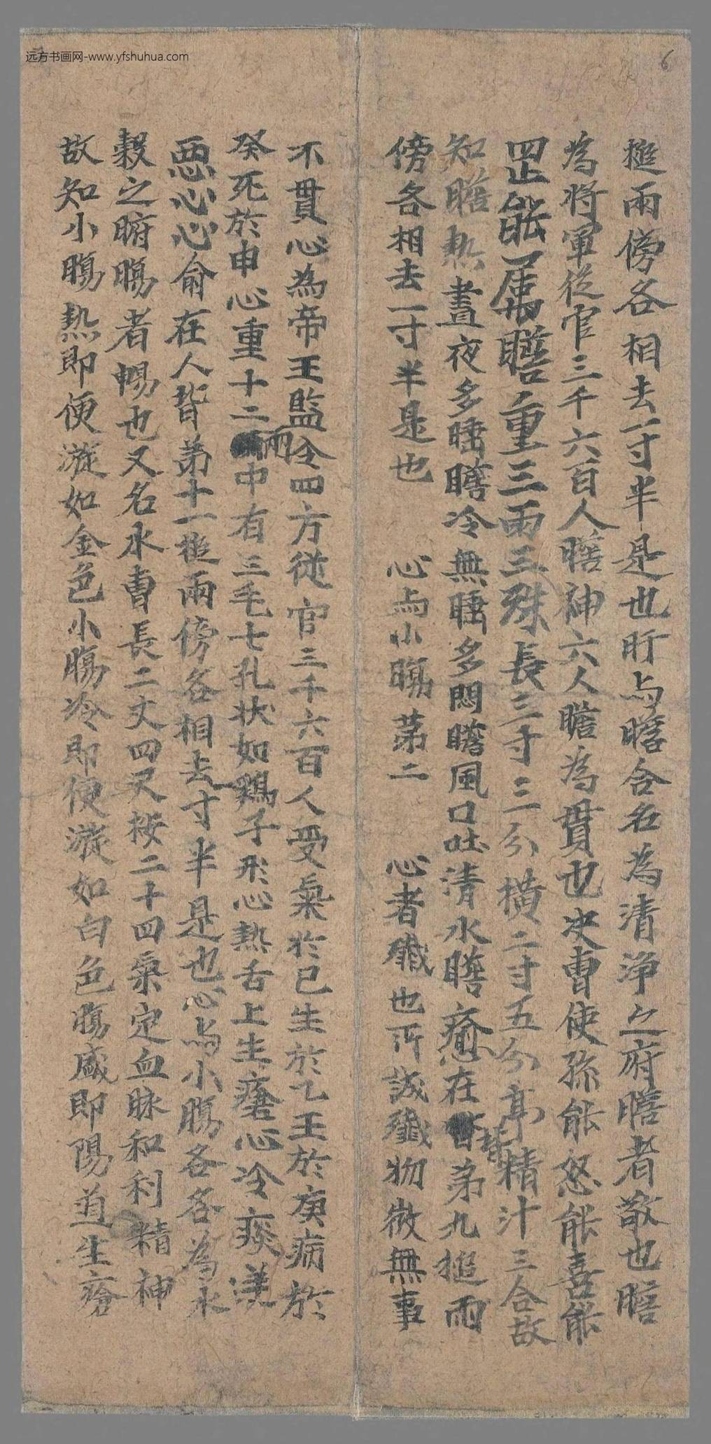 远方书画网-www.yfshuhua.com
6
搥兩傍各相去一寸半是也肝与瞻合名為清淨之府瞻者敢也瞻
為將軍從官三千六百人瞻神六人瞻為貫也决曹使孫能怒能喜能
罡能属瞻重三兩三殊長三寸三分橫二寸五分亭精汁三合故
知瞻熱晝夜多睡瞻冷無睡多悶瞻風口吐清水瞻在背第九搥兩
傍各相去一寸半是也 心与小腸第二 心者殱也所誠殱物微無事
不貫心為帝王監令四方從官三千六百人受氣於巳生於乙王於庚病於
癸死於申心重十二兩中有三毛七孔狀如鷄子形心熱舌上生瘡心冷痰
惡心心俞在人背第十一搥兩傍各相去寸半是也心与小腸各各為水
穀之腑腸者暢也又名水曹長二丈四尺桉二十四氣定血脉和利精神
故知小腸熱即便漩如金色小腸冷即便漩如白色腸盛即陽道生瘡